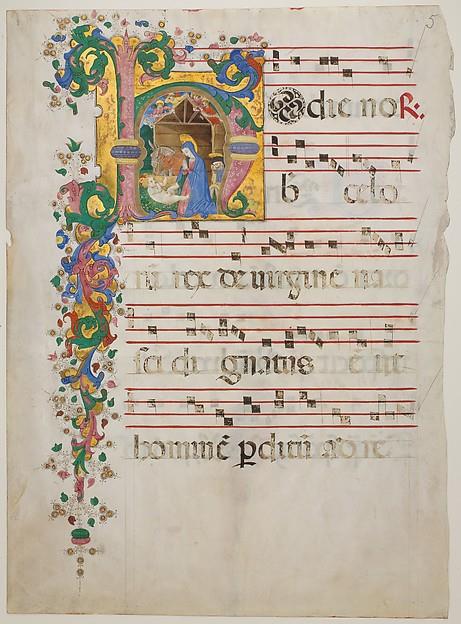 5
Hodie no R:
b celo
rū rex de uirgine na
sci dignatus ē ut
hominē ꝑditū